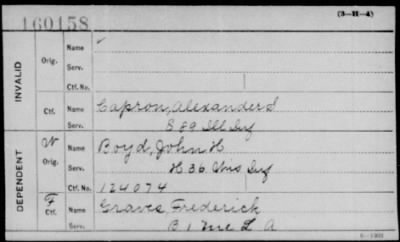 160158
(3-H-4)
INVALID
Orig.
Name
Serv.
Ctf. No.
Ctf.
Name Capron, Alexander S
Serv. S 89 Ill Inf
DEPENDENT
W
Orig.
Name Boyd, John H
Serv. H 36 Ohio Inf
Ctf. No. 124074
F
Ctf.
Name Graves Frederick
Serv. B 1 Me L A